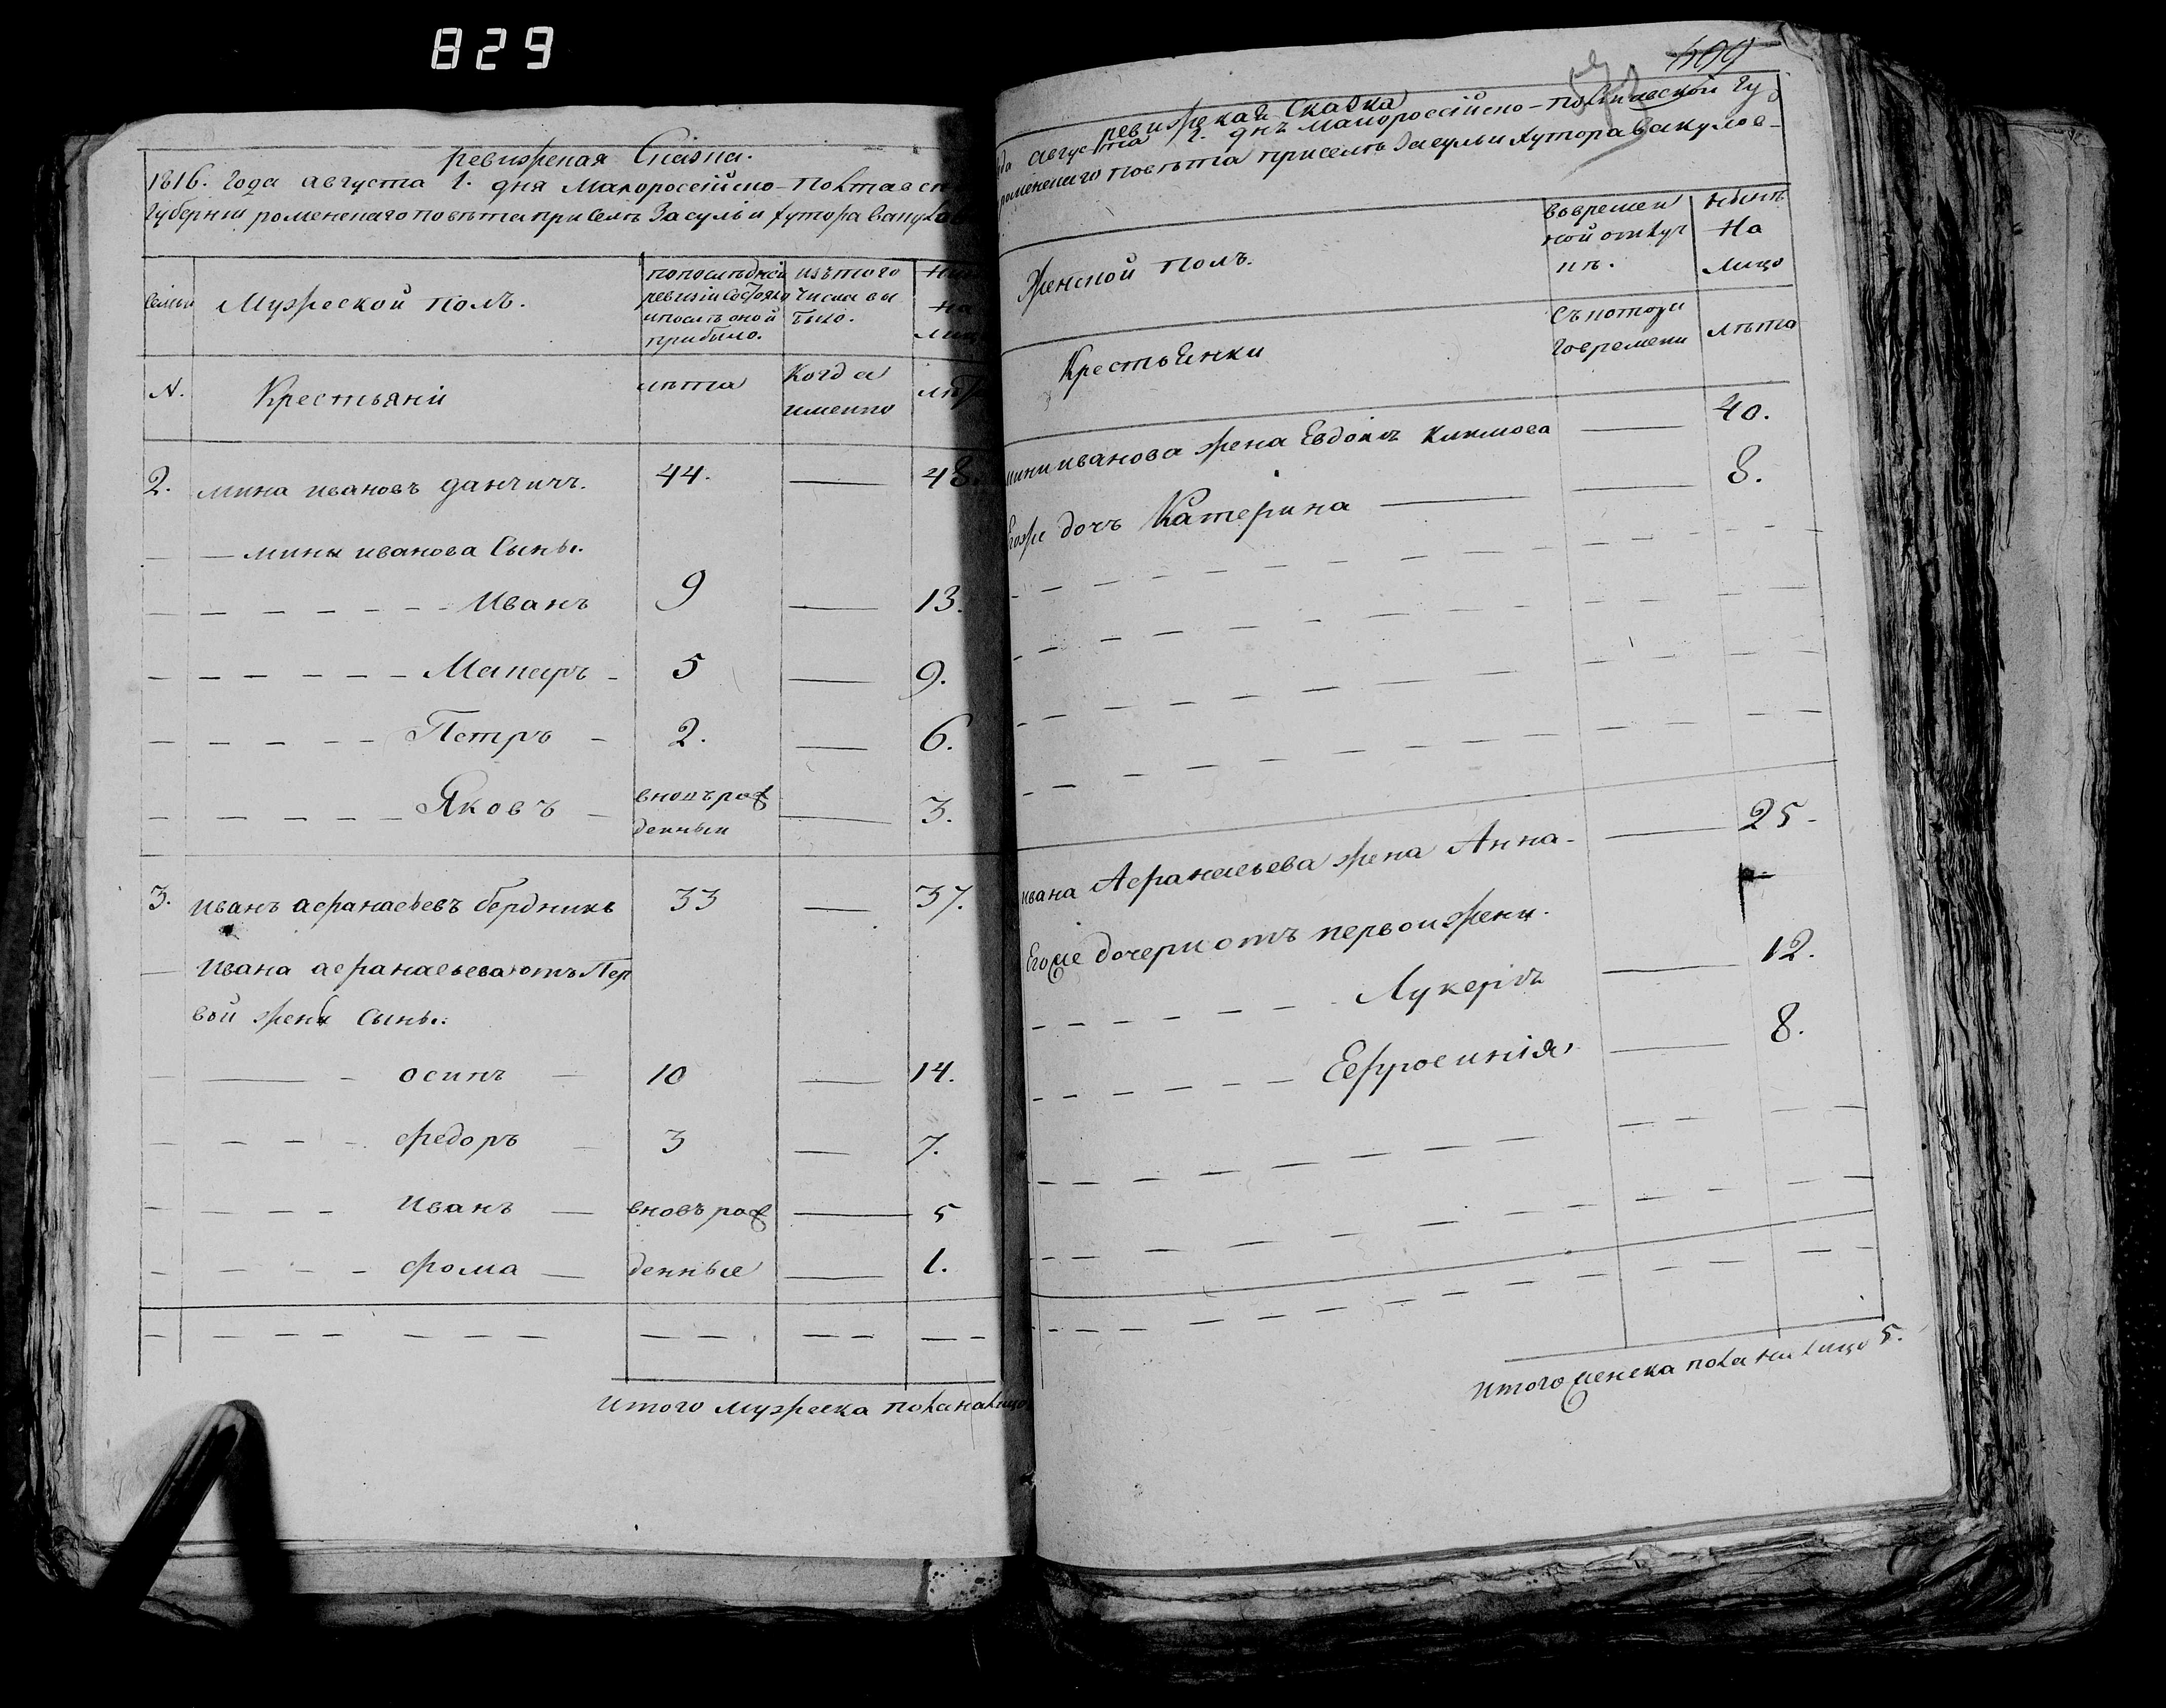 829
ревижская Сказка.
1816. Года августа 1. дня Малоросейско-Полтавск
Губернии роменскаго повѣта при селѣ Засулье и хутора Вакулов
Семьи
Мужеской полъ.
по последней ревизіи состояло и после оной прибыло.
изъ того числа выбыло.
На
N.
Крестьяни
лѣта
Когда именно
2. мина ивановъ данчичъ. 44. — 48.
— — мины иванова Сыны.
Иванъ 9 — 13.
Макаръ 5 — 9.
Петръ 2. — 6.
Яковъ вновъ рож — 3.
денный
3. иванъ афанасьевъ бердникъ 33 — 37.
— Ивана афанасьева отъ Пер
вой жены Сыны:
осипъ 10 — 14.
федоръ 3 — 7.
иванъ вновъ рож — 5
фома денные — 1.
итого мужеска пола налицо
409
ревижская Сказка
августа 1. дня Малоросейско-Полтавской Гу
роменскаго повѣта при селѣ Засулье и хутора Вакулов-
Женской полъ.
во временной отлучкѣ.
Нынѣ На лицо
Крестьянки
Съ котораго времени
лѣта
мини иванова жена Евдокія — 40.
Егоже дочъ Катерина — 8.
ивана Афанасьева жена Анна — 25.
Егоже дочери отъ первои жени.
Лукерія — 12.
Ефросинія — 8.
итого женска пола на лицо 5.